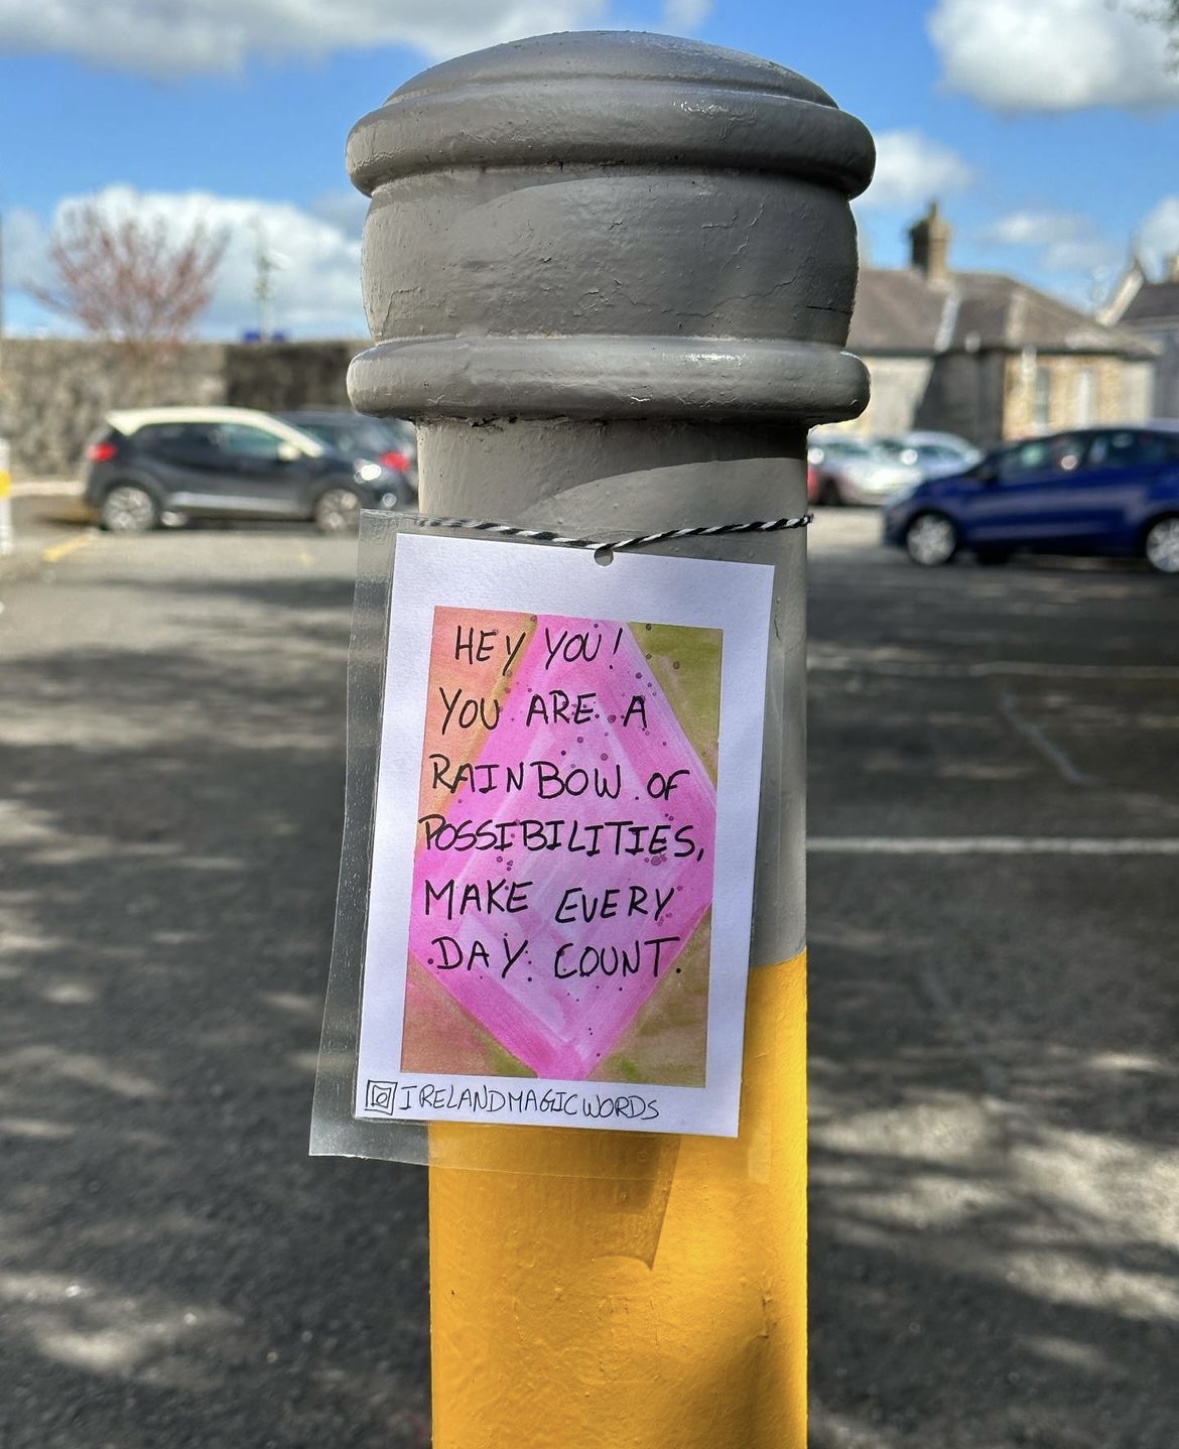 HEY YOU!
YOU ARE A
RAINBOW OF
POSSIBILITIES,
MAKE EVERY
DAY COUNT.
IRELANDMAGICWORDS